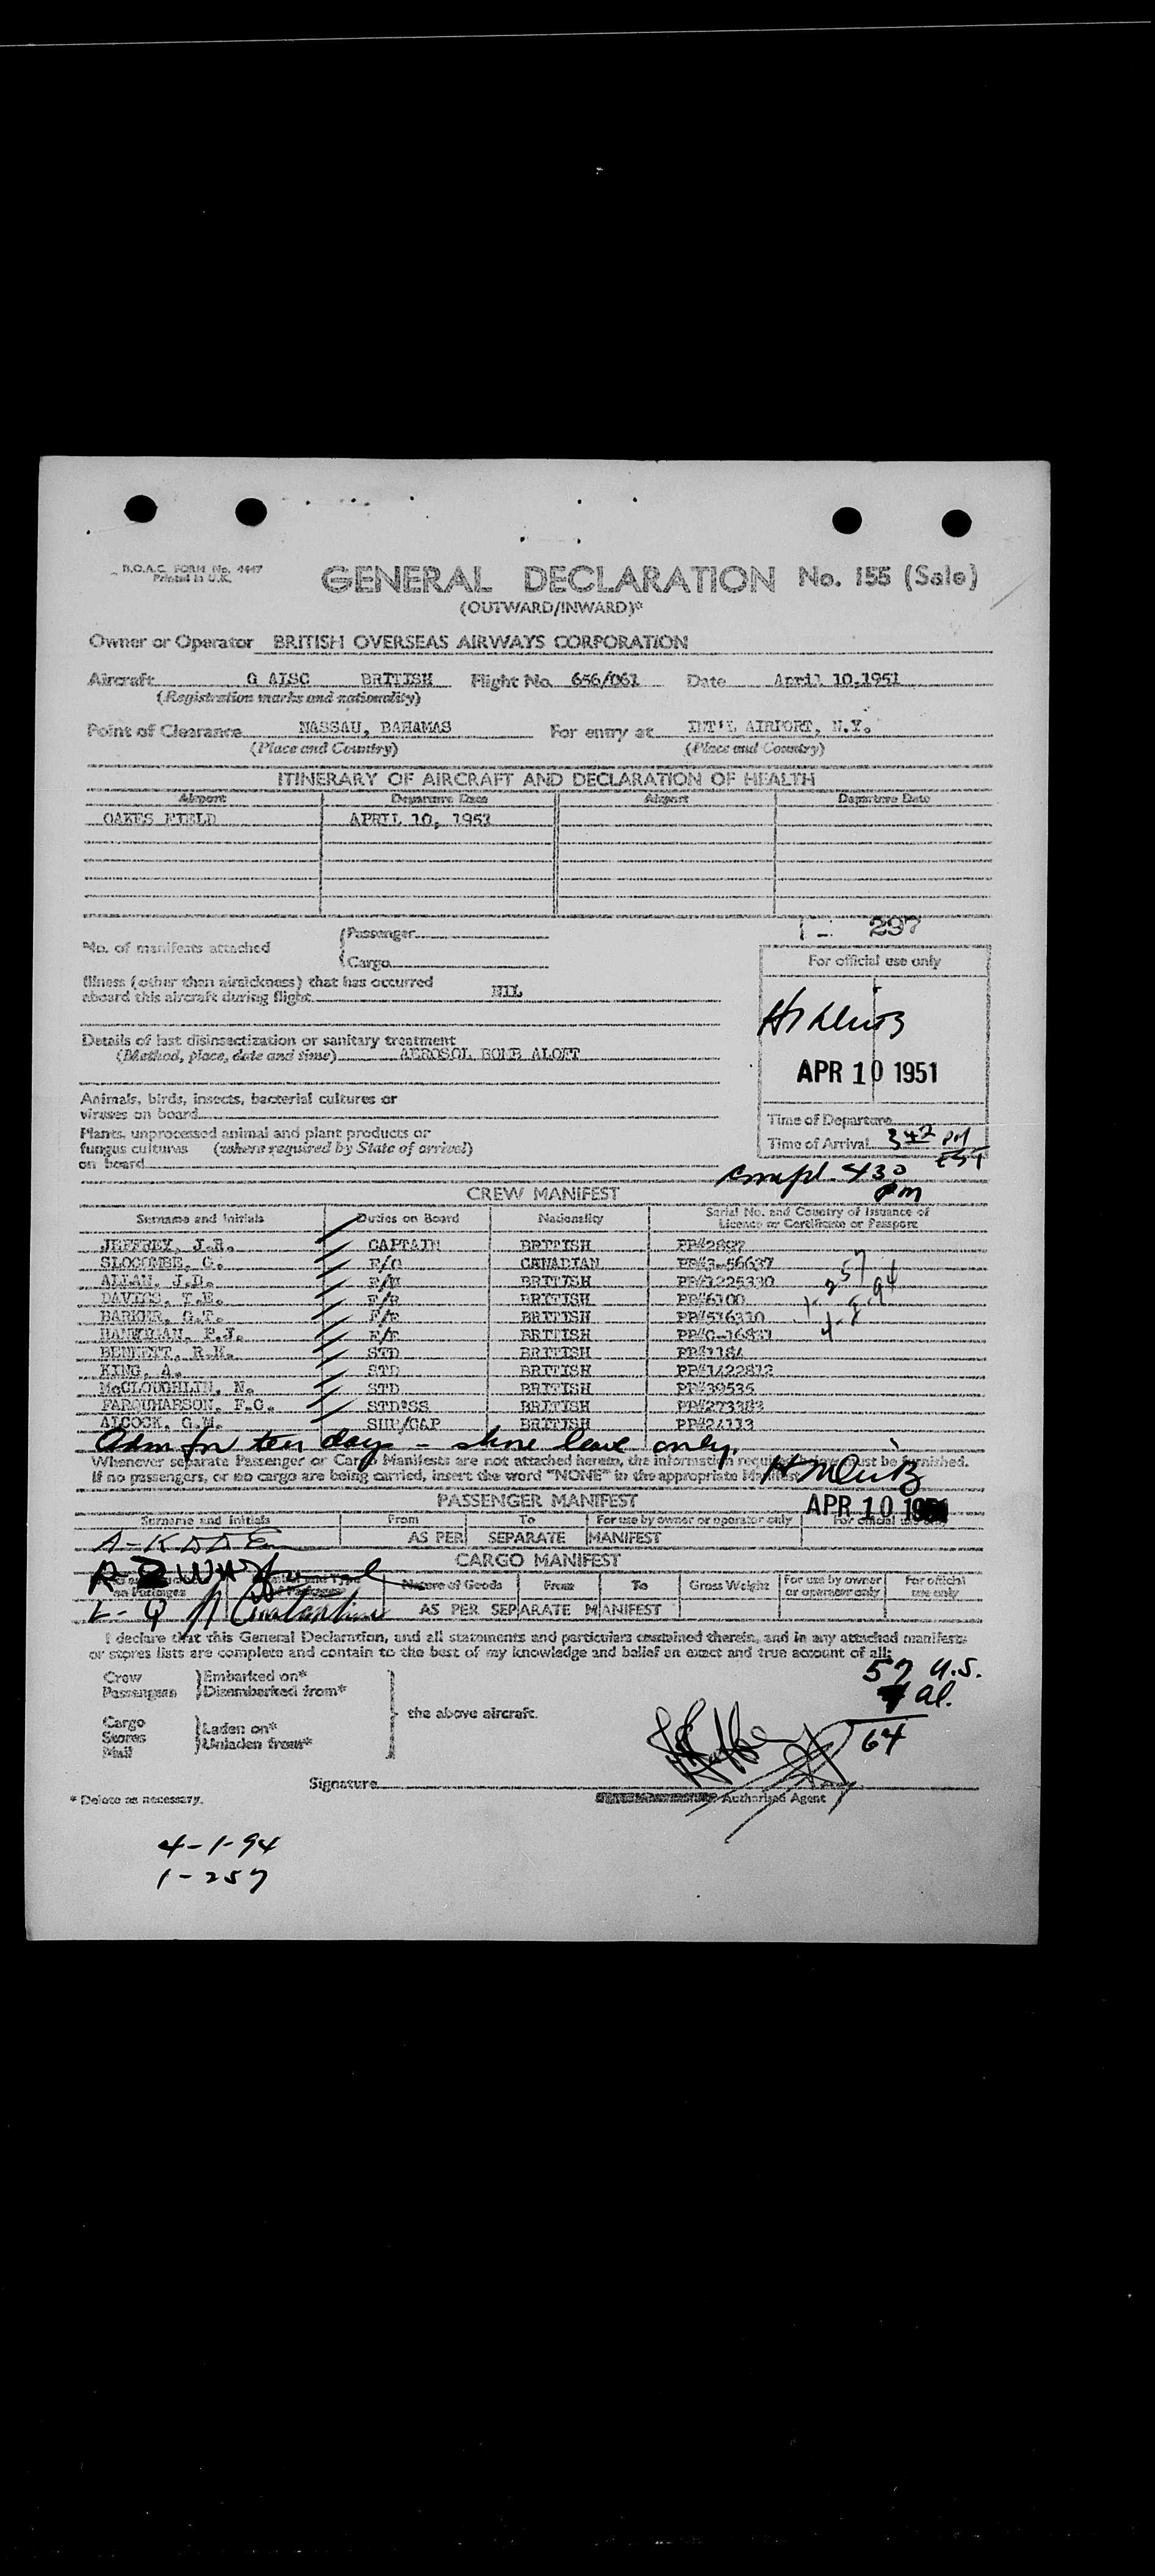 B.O.A.C. FORM No. 4447
Printed in U.K.
GENERAL DECLARATION No. 155 (Sale)
(OUTWARD/INWARD)*
Owner or Operator BRITISH OVERSEAS AIRWAYS CORPORATION
Aircraft G ALSC BRITISH Flight No. 656/061 Date April 10.1951
(Registration marks and nationality)
Point of Clearance NASSAU, BAHAMAS For entry at INT'L AIRPORT, N.Y.
(Place and Country) (Place and Country)
ITINERARY OF AIRCRAFT AND DECLARATION OF HEALTH
Airport Departure Date Airport Departure Date
OAKES FIELD APRIL 10, 1951
297
No. of manifests attached
Passenger
Cargo
For official use only
Illness (other than airsickness) that has occurred
aboard this aircraft during flight NIL
Details of last disinsectization or sanitary treatment
(Method, place, date and time) AEROSOL BOMB ALOFT
APR 10 1951
Animals, birds, insects, bacterial cultures or
viruses on board
Time of Departure
Plants, unprocessed animal and plant products or
fungus cultures (where required by State of arrival)
on board
Time of Arrival 342 PM
EST
compl. 430
pm
CREW MANIFEST
Surname and Initials Duties on Board Nationality Serial No. and Country of Issuance of
Licence or Certificate or Passport
JEFFREY, J.R. CAPTAIN BRITISH PP#2897
SLOCOMBE, G. F/O CANADIAN PP#3-56637
ALLAN, J.D. BRITISH PP#1225330
DAVIES, T.E. BRITISH PP#6100
BARKER, G.T. BRITISH PP#516310
BRITISH
BENNETT, R.H. STD BRITISH PP#1184
KING, A. STD BRITISH PP#1422812
McCLOUGHLIN, N. STD BRITISH PP#39535
FARQUHARSON, F.C. STD'SS BRITISH PP#273383
ALCOCK, G.M. SUP/CAP BRITISH PP#24113
Adm for ten days - shore leave only.
Whenever separate Passenger or Cargo Manifests are not attached herein, the information required below must be furnished.
If no passengers, or no cargo are being carried, insert the word "NONE" in the appropriate Manifest.
PASSENGER MANIFEST
APR 10
Surname and Initials From To For use by owner or operator only For official use only
AS PER SEPARATE MANIFEST
CARGO MANIFEST
Nature of Goods From To Gross Weight For use by owner
or operator only For official
use only
AS PER SEPARATE MANIFEST
I declare that this General Declaration, and all statements and particulars contained therein, and in any attached manifests
or stores lists are complete and contain to the best of my knowledge and belief an exact and true account of all:
57 U.S.
Crew Embarked on*
Passengers Disembarked from*
7 al.
the above aircraft.
64
Cargo
Stores Laden on*
Mail Unladen from*
Signature
* Delete as necessary. Authorised Agent
4-1-94
1-257